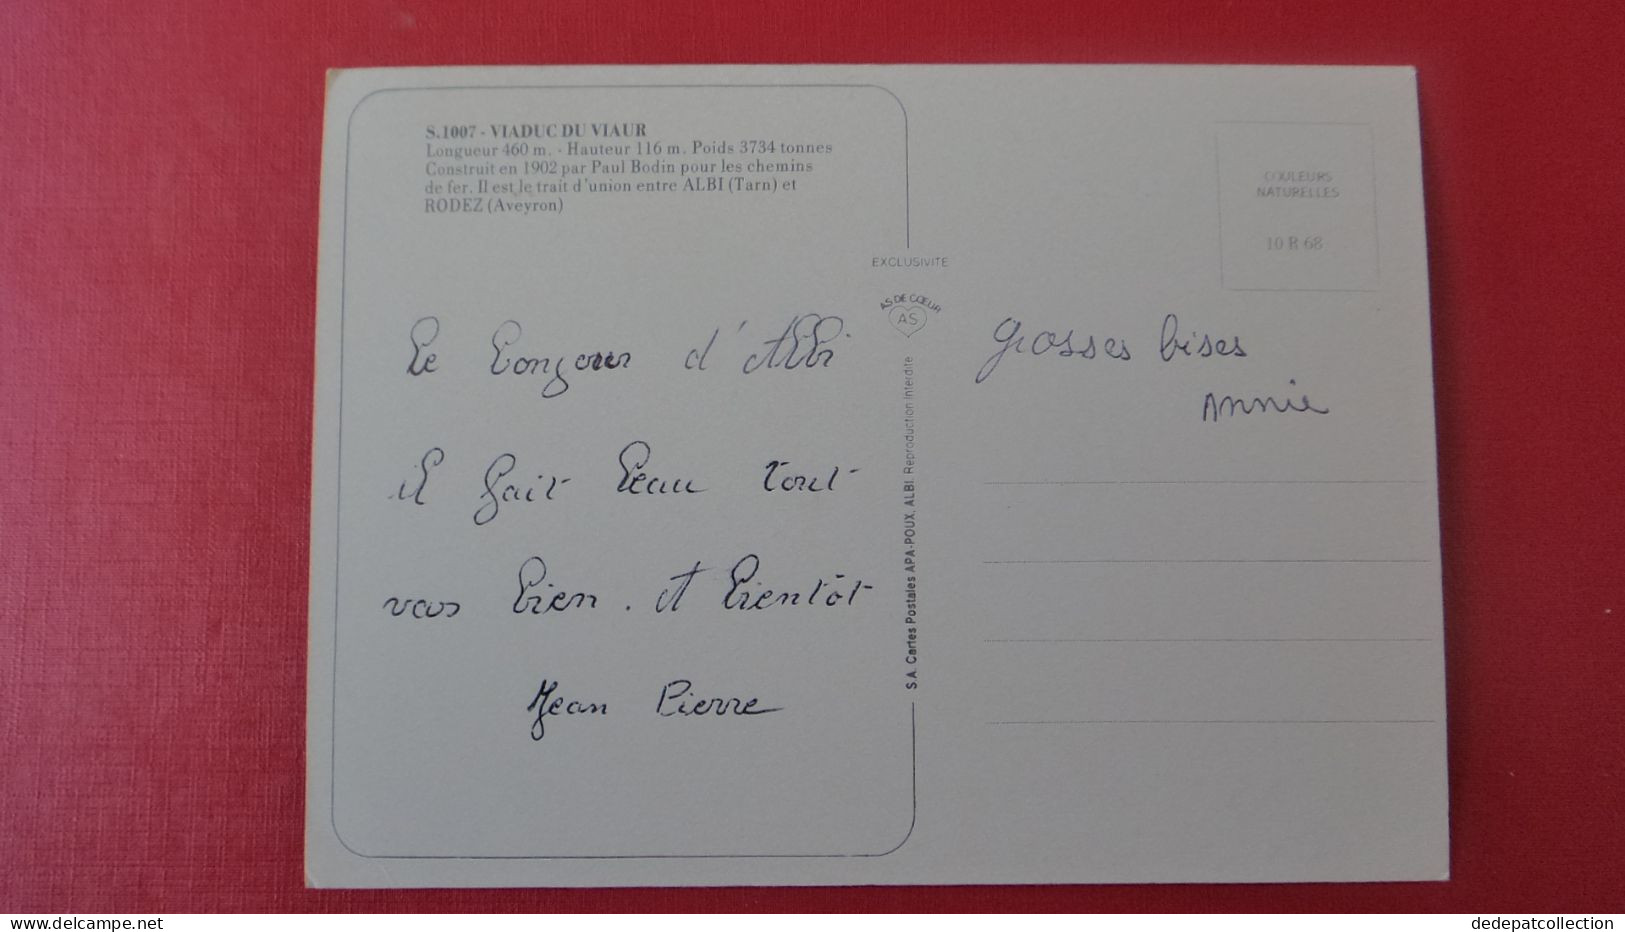 S.1007 - VIADUC DU VIAUR
Longueur 460 m. - Hauteur 116 m. Poids 3734 tonnes
Construit en 1902 par Paul Bodin pour les chemins
de fer. Il est le trait d'union entre ALBI (Tarn) et
RODEZ (Aveyron)
Le bonjour d'Albi
il fait beau tout
vas bien. A bientôt
Jean Pierre
EXCLUSIVITE
AS DE CŒUR
AS
S.A. Cartes Postales APA-POUX, ALBI. Reproduction Interdite
COULEURS
NATURELLES
10 R 68
grosses bises
Annie
delcampe.net
dedepatcollection